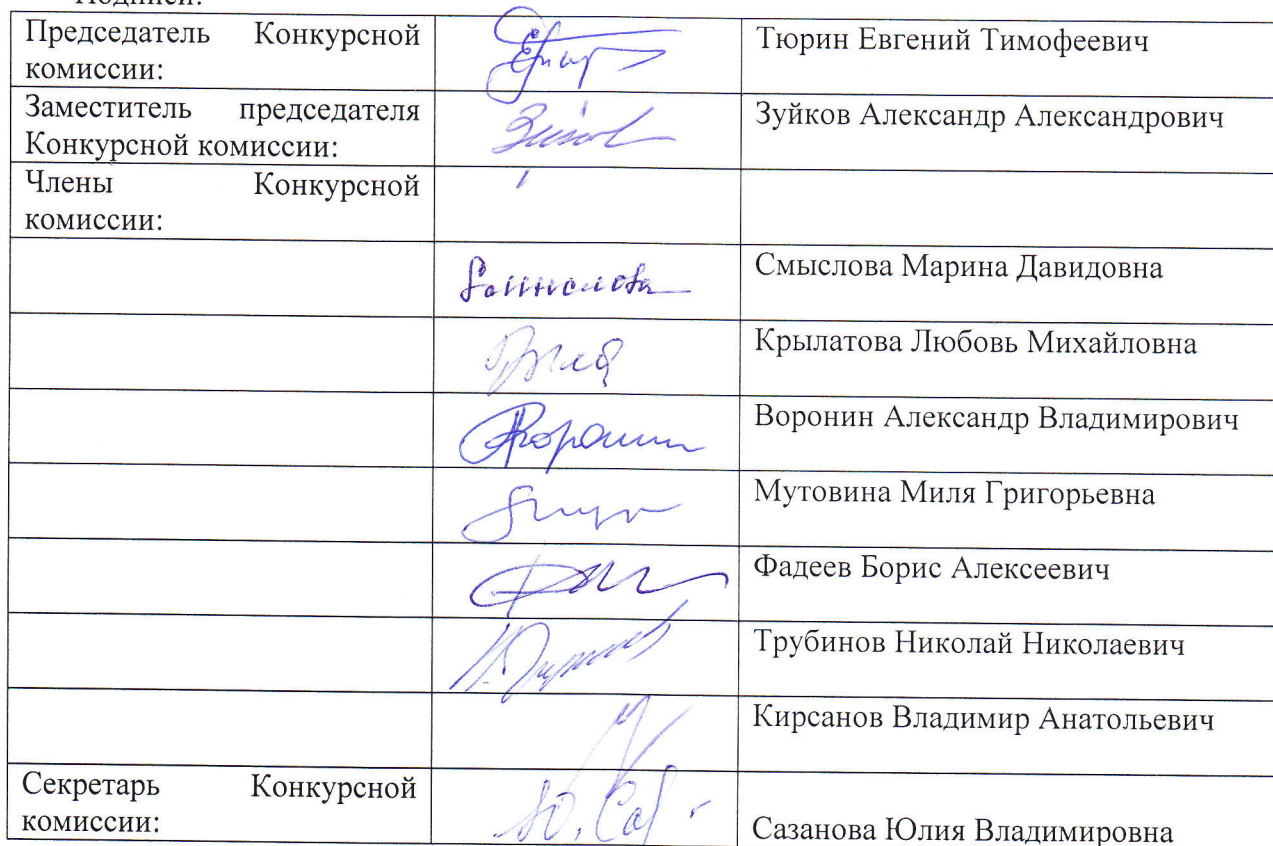 Подписи:
Председатель Конкурсной
комиссии:
Тюрин Евгений Тимофеевич
Заместитель председателя
Конкурсной комиссии:
Зуйков Александр Александрович
Члены Конкурсной
комиссии:
Смыслова Марина Давидовна
Крылатова Любовь Михайловна
Воронин Александр Владимирович
Мутовина Миля Григорьевна
Фадеев Борис Алексеевич
Трубинов Николай Николаевич
Кирсанов Владимир Анатольевич
Секретарь Конкурсной
комиссии:
Сазанова Юлия Владимировна